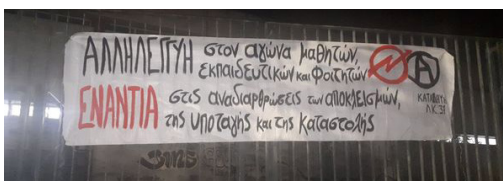 ΑΛΛΗΛΕΓΓΥΗ στον αγώνα μαθητών,
εκπαιδευτικών και φοιτητών
ΕΝΑΝΤΙΑ στις αναδιαρθρώσεις των αποκλεισμών,
της υποταγής και της καταστολής
ΚΑΤΑΛΗΨΗ
Λ.Κ. 37